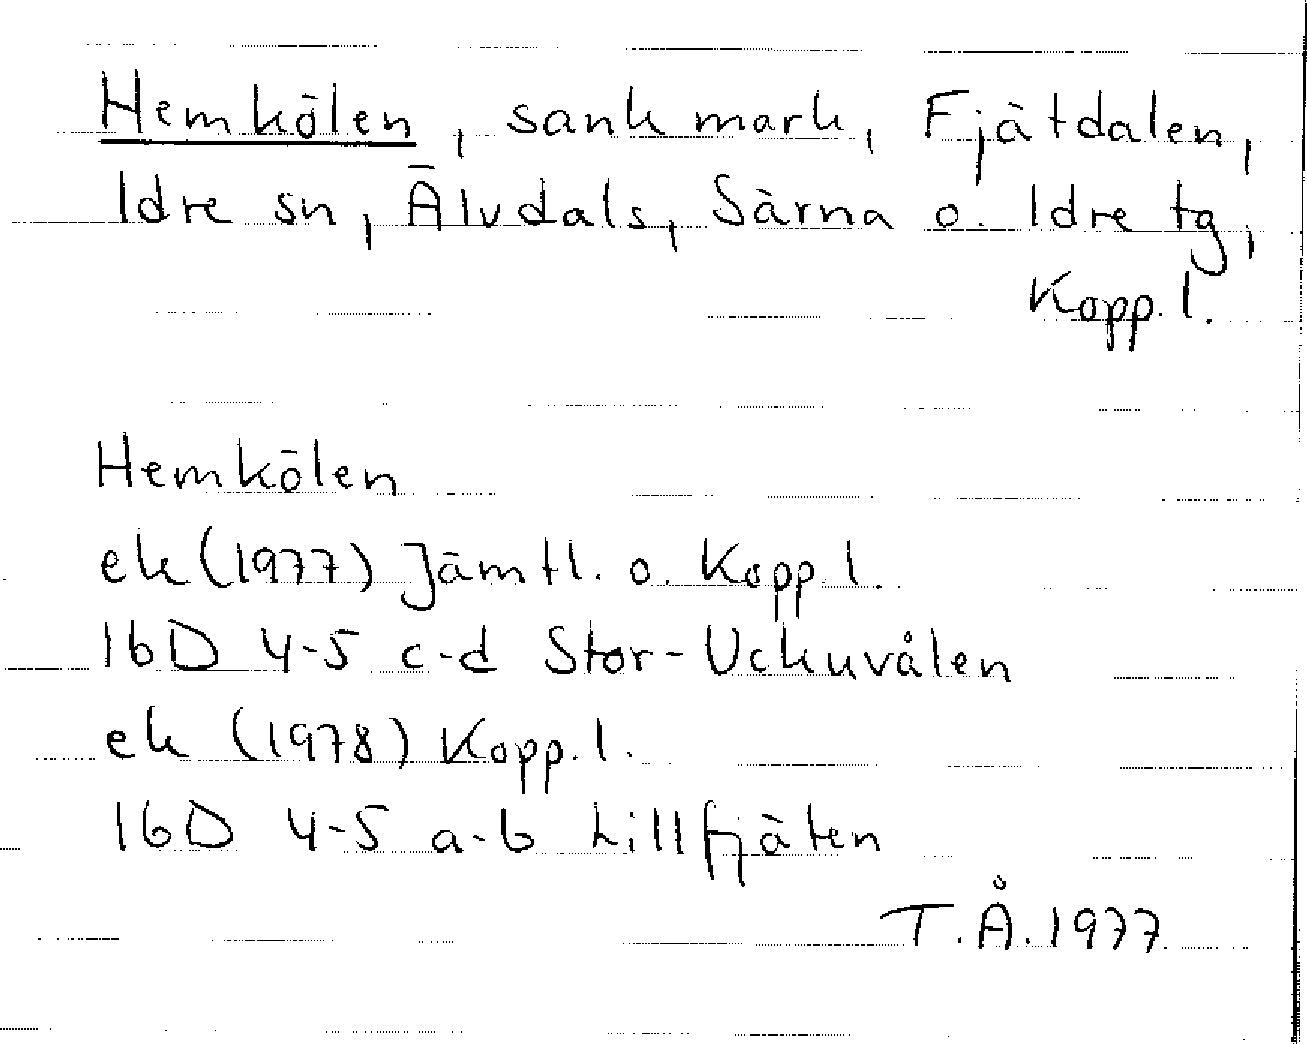 Hemkölen, sank mark, Fjätdalen,
Idre sn, Älvdals, Särna o. Idre tg,
Kopp. l.
Hemkölen
ek (1977) Jämtl. o. Kopp l.
16D 4-5 c-d Stor-Uckuvålen
ek (1978) Kopp. l.
16D 4-5 a-b Lillfjäten
T.Å. 1977